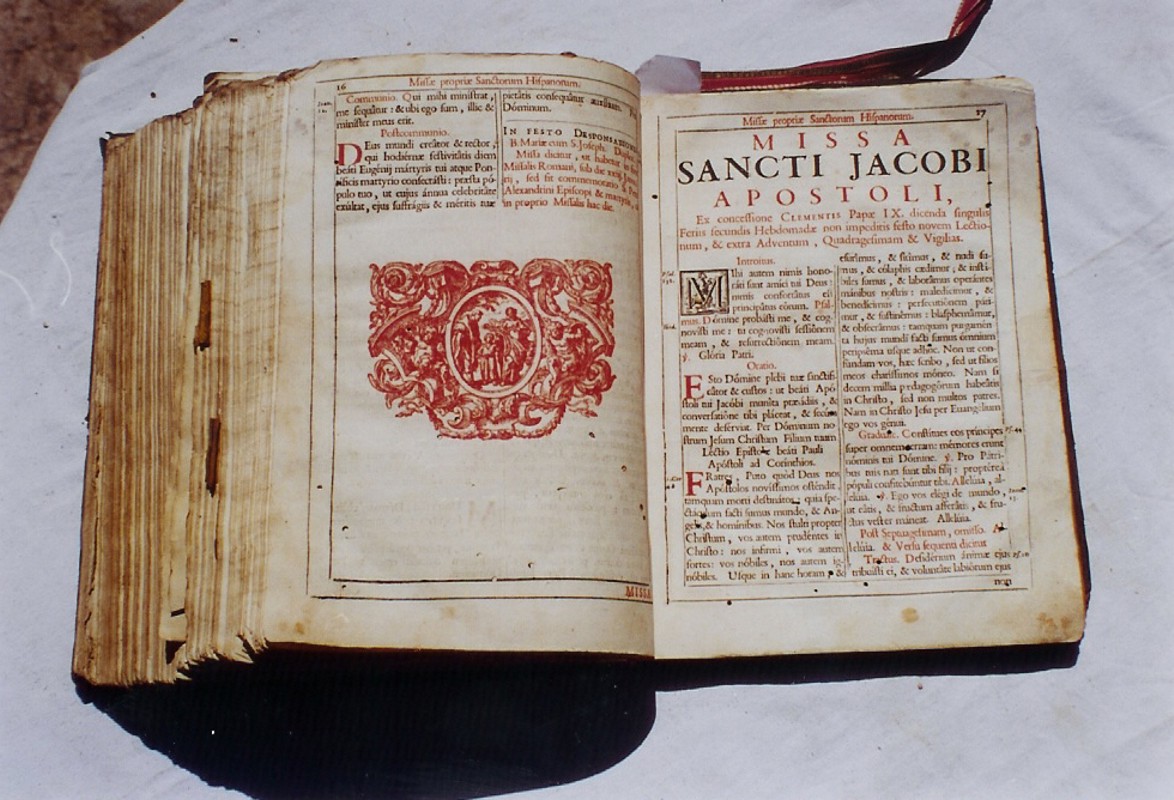 16
Missæ propriæ Sanctorum Hispanorum.
Communio. Qui mihi ministrat,
me sequátur: & ubi ego sum, illic &
minister meus erit.
Postcommunio.
DEus mundi creátor & rector,
qui hodiérnæ festivitátis diem
beáti Eugénij mártyris tui atque Pon-
tificis martyrio consecrásti: præsta pó-
pulo tuo, ut cujus ánnua celebritáte
exúltat, ejus suffrágiis & méritis tuæ
pietátis consequátur auxílium.
Dóminum.
IN FESTO
B. Mariæ cum S. Joseph,
Missa dicitur, ut habetur in
Missalis Romani, sub die
sed fit commemoratio S.
Alexandrini Episcopi & martyris,
in proprio Missalis hac die.
MISSA
Missæ propriæ Sanctorum Hispanorum.
17
MISSA
SANCTI JACOBI
APOSTOLI,
Ex concessione CLEMENTIS Papæ IX. dicenda singulis
Feriis secundis Hebdomadæ non impeditis festo novem Lectio-
num, & extra Adventum, Quadragesimam & Vigilias.
Introitus.
MIhi autem nimis hono-
ráti sunt amici tui Deus:
nimis confortátus est
principátus eórum. Psal-
mus. Dómine probásti me, & cog-
novísti me: tu cognovísti sessiónem
meam, & resurrectiónem meam.
℣. Glória Patri.
Oratio.
ESto Dómine plebi tuæ sanctifi-
cátor & custos: ut beáti Apó
stoli tui Jacóbi muníta præsídiis, &
conversatióne tibi pláceat, & secúra
mente desérviat. Per Dóminum no-
strum Jesum Christum Filium tuum
Lectio Epistolæ beáti Pauli
Apóstoli ad Corínthios.
FRatres, Puto quòd Deus nos
Apóstolos novíssimos osténdit,
tamquam morti destinátos: quia spe-
ctáculum facti sumus mundo, & An-
gelis, & homínibus. Nos stulti propter
Christum, vos autem prudéntes in
Christo: nos infirmi, vos autem
fortes: vos nóbiles, nos autem ig-
nóbiles. Usque in hanc horam, &
esurímus, & sitímus, & nudi su-
mus, & cólaphis cædimur, & instá-
biles sumus, & laborámus operántes
mánibus nostris: maledícimur, &
benedícimus: persecutiónem páti-
mur, & sustinémus: blasphemámur,
& obsecrámus: tamquam purgamén
ta hujus mundi facti sumus ómnium
peripséma usque adhùc. Non ut con-
fúndam vos, hæc scribo, sed ut fílios
meos charíssimos móneo. Nam si
decem míllia pædagogórum habeátis
in Christo, sed non multos patres.
Nam in Christo Jesu per Evangélium
ego vos génui.
Graduale. Constitues eos príncipes
super omnem terram: mémores erunt
nóminis tui Dómine. ℣. Pro Pátri-
bus tuis nati sunt tibi fílij: proptérea
pópuli confitebúntur tibi. Allelúia, al-
lelúia. ℣. Ego vos elégi de mundo,
ut eátis, & fructum afferátis, & fru-
ctus vester máneat. Allelúia.
Post Septuagesimam, omisso Al-
lelúia. & Versu sequenti dicitur
Tractus. Desidérium ánimæ ejus
tribuísti ei, & voluntáte labiórum ejus
non